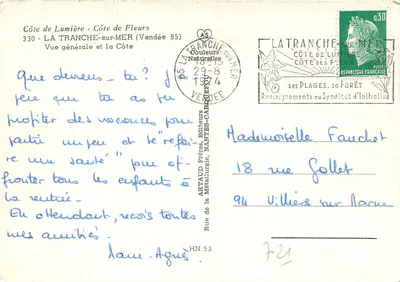 Côte de Lumière - Côte de Fleurs
330 - LA TRANCHE-sur-MER (Vendée 85)
Vue générale et la Côte
Que deviens-tu? J'es
père que tu as su
profiter des vacances pour
partir un peu et te "refai-
re une santé" pour af-
fronter tous les enfants à
la rentrée.
En attendant, reçois toutes
mes amitiés.
Marie-Agnès.
AS
Couleurs
Naturelles
ARTAUD Frères, Editeurs
Rue de la Métallurgie, NANTES-CARQUEFOU
HN 53
85 LA TRANCHE SUR MER
18-15
29-8
1974
VENDEE
LA TRANCHE-SUR-MER
CÔTE DE LUMIÈRE
CÔTE DES FLEURS
SES PLAGES, SA FORÊT
Renseignements au Syndicat d'Initiative
0,30
REPUBLIQUE FRANCAISE
Mademoiselle Fauchet
18 rue Gollet
94 Villiers sur Marne
721